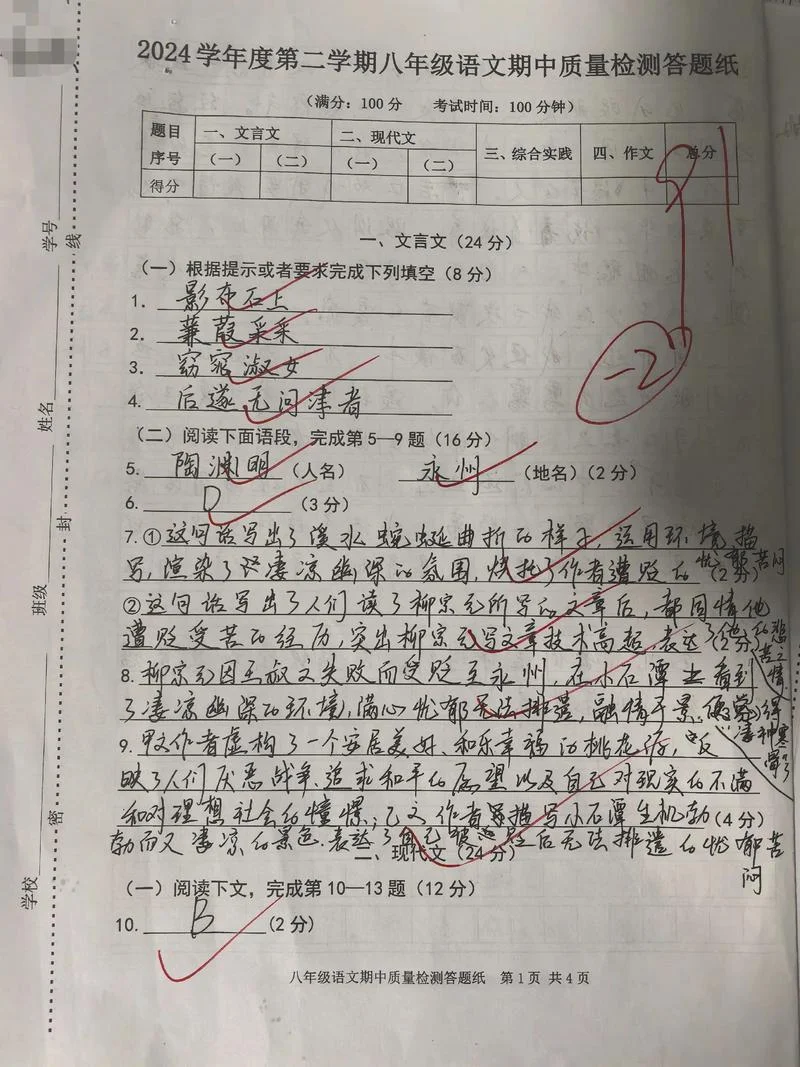 2024学年度第二学期八年级语文期中质量检测答题纸
(满分:100分 考试时间:100分钟)
题目 一、文言文 二、现代文 三、综合实践 四、作文 总分
序号 (一) (二) (一) (二)
得分
-2
学校 班级 姓名 学号
密 封 线
一、文言文(24分)
(一)根据提示或者要求完成下列填空(8分)
1. 影布石上
2. 蒹葭采采
3. 窈窕淑女
4. 后遂无问津者
(二)阅读下面语段,完成第5—9题(16分)
5. 陶渊明(人名) 永州(地名)(2分)
6. D (3分)
7. ①这句话写出了溪水蜿蜒曲折的样子,运用环境描
写,渲染了凄凉幽深的氛围,烘托了作者遭贬的忧郁苦闷(2分)
②这句话写出了人们读了柳宗元所写的文章后,都同情他
遭贬受苦的经历,突出柳宗元写文章技术高超,表达了他的悲苦之情(2分)
8. 柳宗元因王叔文失败而受贬至永州,在小石潭看到
了凄凉幽深的环境,满心忧郁无法排遣,融情于景,觉得凄神寒骨
9. 甲文作者虚构了一个安居美好、和乐幸福的桃花源,反
映了人们厌恶战争、追求和平的愿望以及自己对现实的不满
和对理想社会的憧憬;乙文作者描写小石潭生机勃(4分)
勃而又凄凉的景色,表达了自己被贬后无法排遣的忧郁苦闷
二、现代文(24分)
(一)阅读下文,完成第10—13题(12分)
10. B (2分)
八年级语文期中质量检测答题纸 第1页 共4页